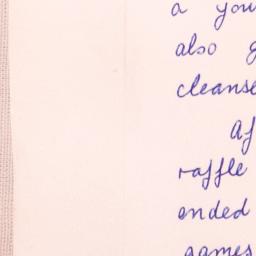 a you
also g
cleanse
Af
raffle
ended
games